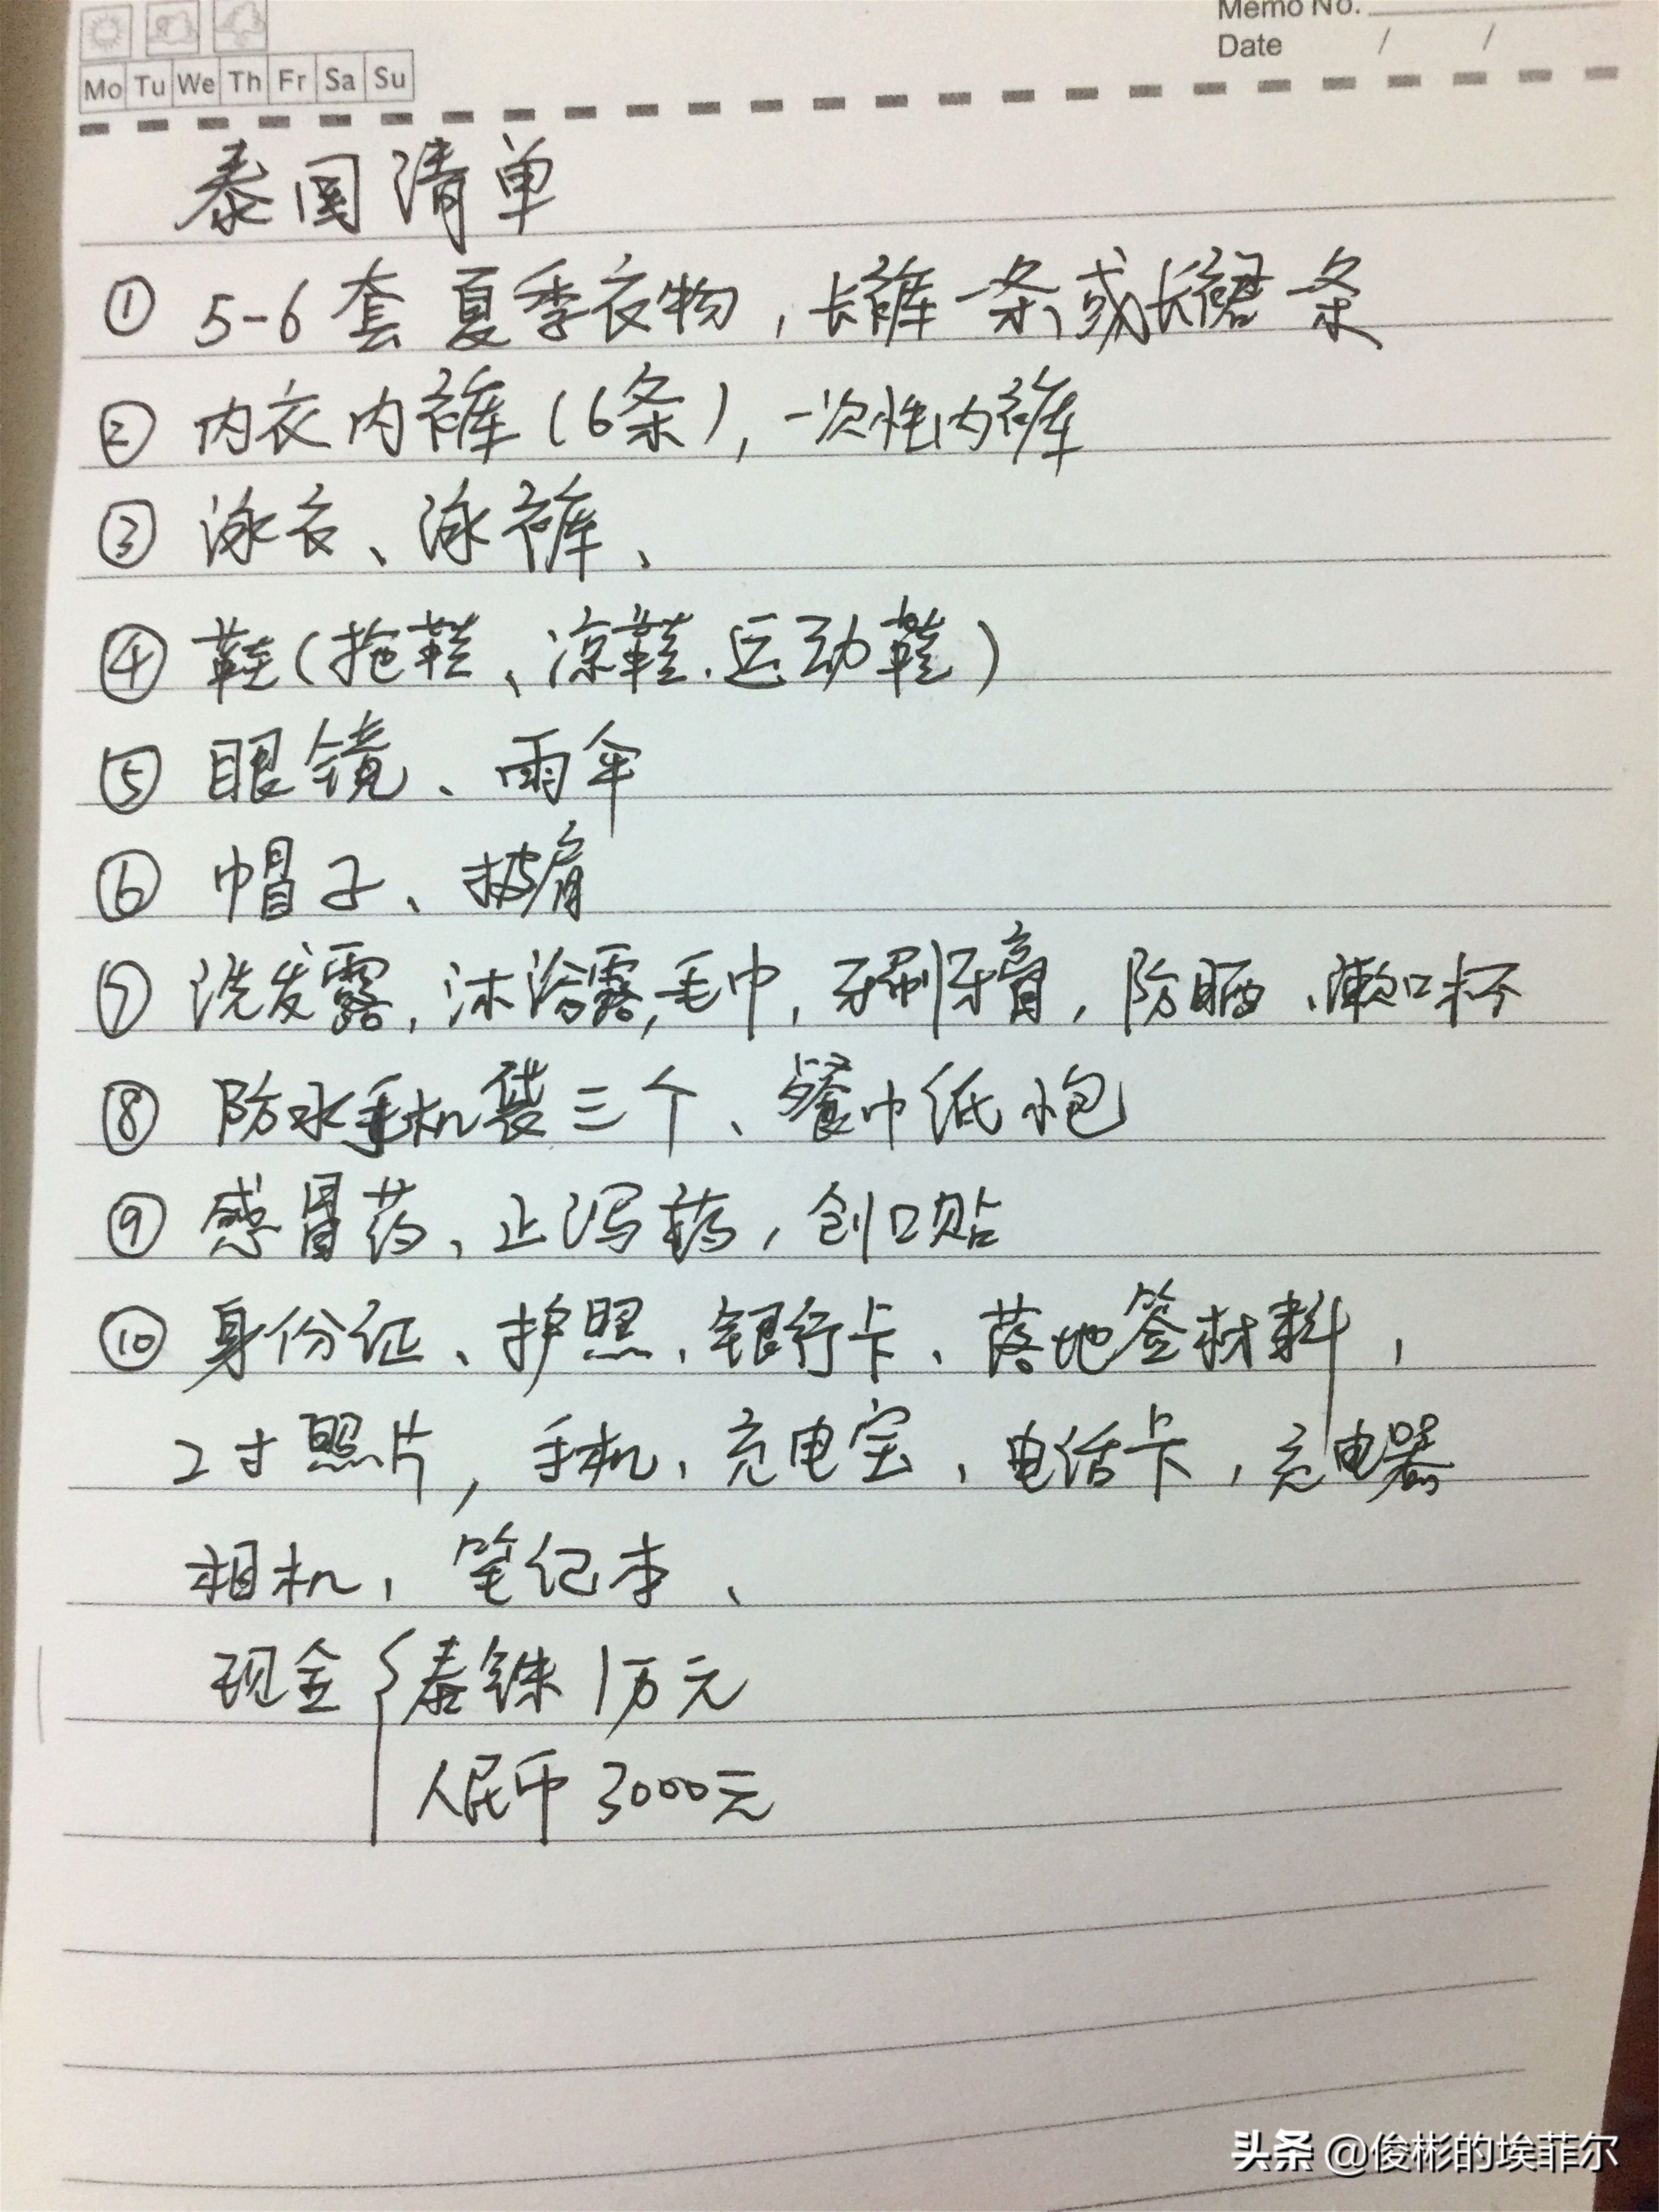 Memo No.
Date / /
Mo Tu We Th Fr Sa Su
泰国清单
① 5-6套夏季衣物，长裤一条、或长裙一条
② 内衣内裤（6条），一次性内裤
③ 泳衣、泳裤、
④ 鞋（拖鞋、凉鞋.运动鞋）
⑤ 眼镜、雨伞
⑥ 帽子、披肩
⑦ 洗发露，沐浴露，毛巾，牙刷牙膏，防晒、漱口杯
⑧ 防水手机袋三个、餐巾纸小包
⑨ 感冒药、止泻药，创口贴
⑩ 身份证、护照、银行卡、落地签材料，
2寸照片，手机、充电宝、电话卡，充电器
相机，笔记本、
现金{泰铢1万元
人民币3000元
头条 @俊彬的埃菲尔